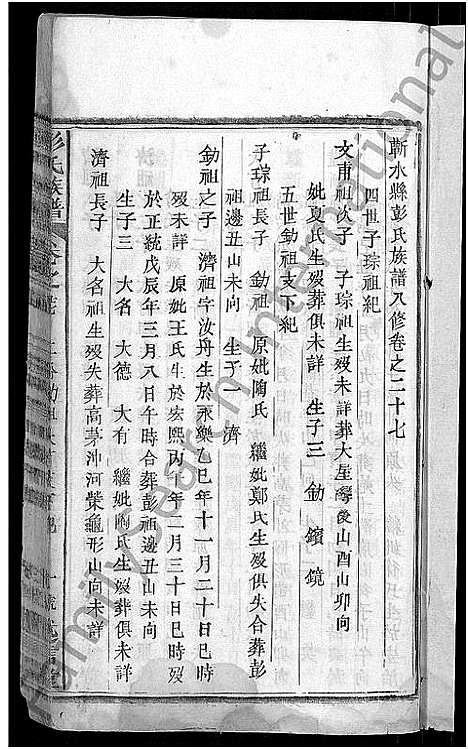 蘄水縣彭氏族譜八修卷之二十七
四世子琮祖紀
文甫祖次子　子琮祖生歿未詳葬大屋灣後山酉山卯向
妣夏氏生歿葬俱未詳　生子三　釛　鑌　鏡
五世釛祖支下紀
子琮祖長子　釛祖　原妣陶氏　繼妣鄭氏生歿俱失合葬彭
祖邊丑山未向　生子一　濟
釛祖之子　濟祖字汝舟生於永樂乙巳年十一月二十日巳時
歿未詳　原妣王氏生於宏熙丙午年二月三十日巳時歿
於正統戊辰年三月八日午時合葬彭祖邊丑山未向
生子三　大名　大德　大有　繼妣陶氏生歿葬俱未詳
濟祖長子　大名祖生歿失葬高茅沖河柴龜形山向未詳
彭氏族譜
FamilySearch International